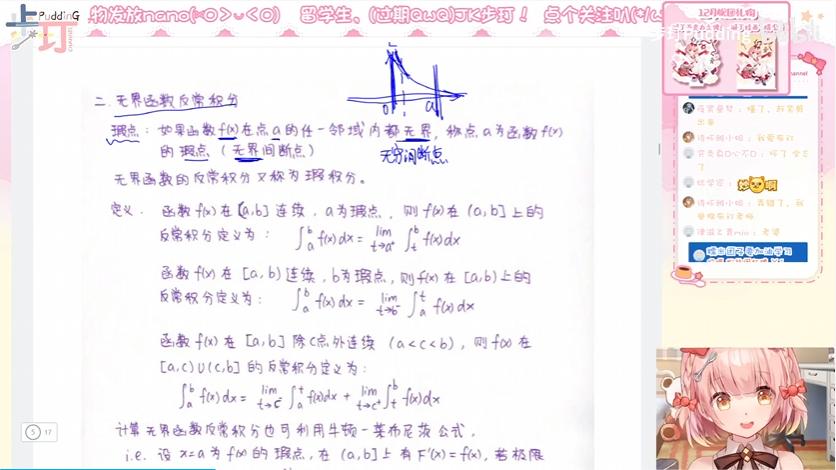 PuddinG
卡玎
CHANNEL
物发放nano(≈O > ⌄ < O) 留学生、(过期QwQ)JK步玎！ 点个关注叭(*/ω
12月舰团礼物
步玎Pudding
二. 无界函数反常积分
瑕点：如果函数f(x)在点a的任一邻域内都无界，称点a为函数f(x)
的瑕点（无界间断点）
无穷间断点
0
a
无界函数的反常积分又称为瑕积分。
定义． 函数f(x)在[a,b]连续，a为瑕点，则f(x)在(a,b]上的
反常积分定义为： ∫_a^b f(x)dx = lim_{t→a⁺} ∫_t^b f(x)dx
函数f(x)在[a,b)连续，b为瑕点，则f(x)在[a,b)上的
反常积分定义为： ∫_a^b f(x)dx = lim_{t→b⁻} ∫_a^t f(x)dx
函数f(x)在[a,b]除c点外连续 (a<c<b)，则f(x)在
[a,c)∪(c,b]的反常积分定义为：
∫_a^b f(x)dx = lim_{t→c⁻} ∫_a^t f(x)dx + lim_{t→c⁺} ∫_t^b f(x)dx
计算无界函数反常积分也可利用牛顿-莱布尼茨公式，
i.e. 设 x=a为f(x)的瑕点，在(a,b]上有F'(x)=f(x)，若极限
5 17
channel
出来
妙啊